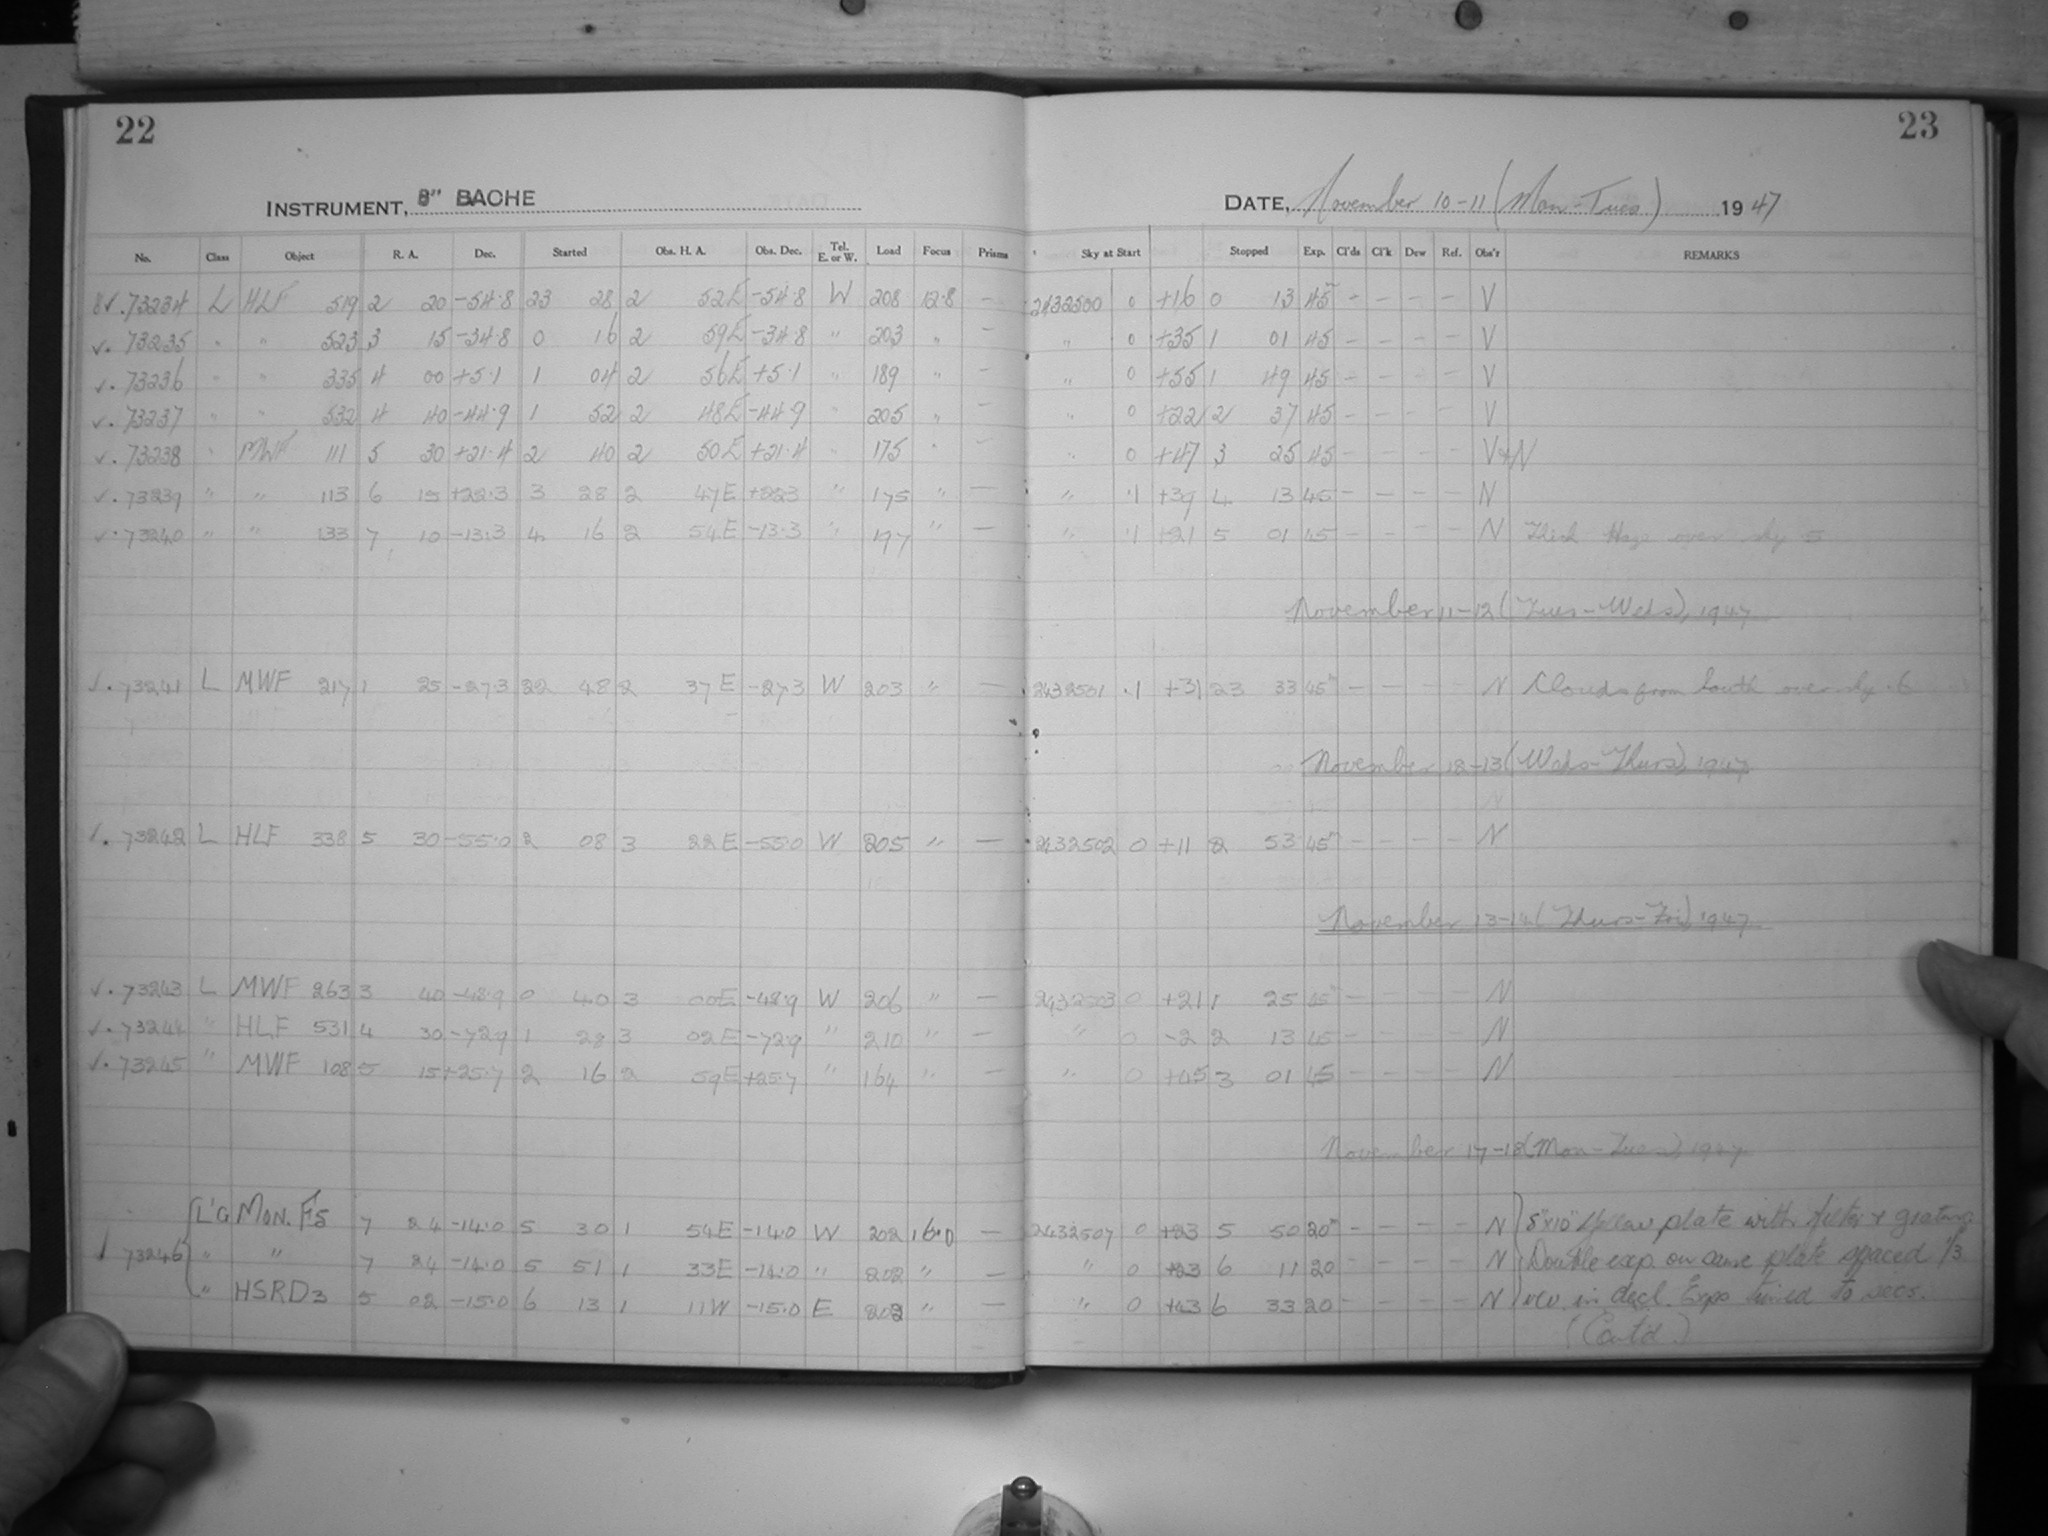 22
23
INSTRUMENT, 8" BACHE
DATE, November 10-11 (Mon-Tues) 1947
No. Class Object R. A. Dec. Started Obs. H. A. Obs. Dec. Tel. E. or W. Load Focus Prisms Sky at Start Stopped Exp. Cl'ds Cl'k Dew Ref. Obs'r REMARKS
√. 73234 L HLF 519 2 20 -54.8 23 28 2 52E -54.8 W 208 12.8 - 2432500 0 +16 0 13 45m - - - - V
√. 73235 " " 523 3 15 -34.8 0 16 2 59E -34.8 " 203 " - " 0 +35 1 01 45 - - - - V
√. 73236 " " 335 4 00 +5.1 1 04 2 56E +5.1 " 189 " - " 0 +55 1 49 45 - - - - V
√. 73237 " " 532 4 40 -44.9 1 52 2 48E -44.9 " 205 " - " 0 +22 2 37 45 - - - - V
√. 73238 " MWF 111 5 30 +21.4 2 40 2 50E +21.4 " 175 " - " 0 +47 3 25 45 - - - - V+N
√. 73239 " " 113 6 15 +22.3 3 28 2 47E +22.3 " 175 " - " .1 +39 4 13 45 - - - - N
√. 73240 " " 133 7 10 -13.3 4 16 2 54E -13.3 " 197 " - " .1 +21 5 01 45 - - - - N Thick Haze over sky .5
November 11-12 (Tues-Weds), 1947
√. 73241 L MWF 217 1 25 -27.3 22 48 2 37E -27.3 W 203 " - 2432501 .1 +31 23 33 45m - - - - N Clouds from South over sky .6
November 12-13 (Weds-Thurs), 1947
√. 73242 L HLF 338 5 30 -55.0 2 08 3 22E -55.0 W 205 " - 2432502 0 +11 2 53 45m - - - - N
November 13-14 (Thurs-Fri) 1947
√. 73243 L MWF 263 3 40 -48.9 0 40 3 00E -48.9 W 206 " - 2432503 0 +21 1 25 45m - - - - N
√. 73244 " HLF 531 4 30 -72.9 1 28 3 02E -72.9 " 210 " - " 0 -2 2 13 45 - - - - N
√. 73245 " MWF 108 5 15 +25.7 2 16 2 59E +25.7 " 164 " - " 0 +45 3 01 45 - - - - N
November 17-18 (Mon-Tues), 1947
L'G MON. F5 7 24 -14.0 5 30 1 54E -14.0 W 202 16.0 - 2432507 0 +23 5 50 20m - - - - N 8"x10" Yellow plate with filter & grating
√ 73246 " " 7 24 -14.0 5 51 1 33E -14.0 " 202 " - " 0 +23 6 11 20 - - - - N Double exp. on same plate spaced 1/3
" HSRD3 5 02 -15.0 6 13 1 11W -15.0 E 202 " - " 0 +43 6 33 20 - - - - N in decl. Exps timed to secs.
(Cont'd.)